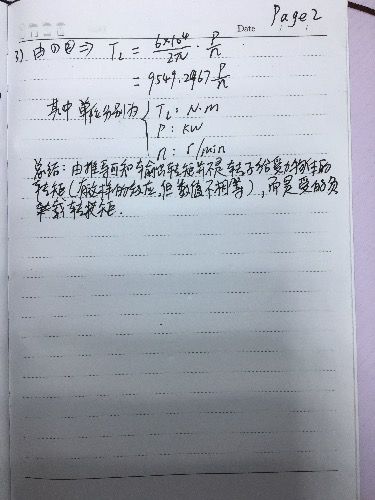 Page 2
Date
3) 由①②⇒ T_L = 6×10^4/2π · P/n
= 9549.2967 P/n
其中单位分别为 { T_L: N.m
P: KW
n: r/min
总结: 由推导可知输出转矩并不是转子给受力物体的
转矩(有这样的效应,但数值不相等),而是受的负
载转矩.